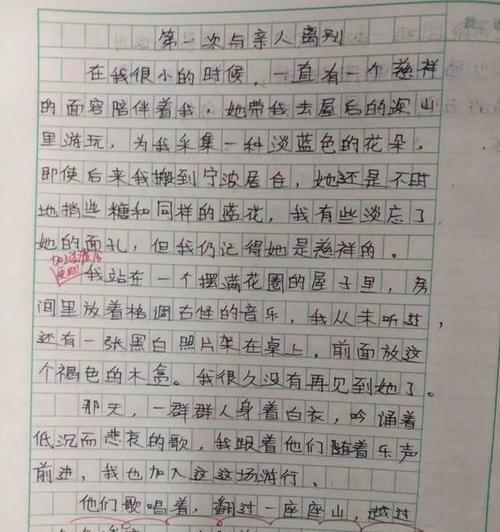 第一次与亲人离别
在我很小的时候，一直有一个慈祥
的面容陪伴着我，她带我去屋后的深山
里游玩，为我采集一种淡蓝色的花朵，
即使后来我搬到宁波居住，她还是不时
地捎些糖和同样的蓝花，我有些淡忘了
她的面孔，但我仍记得她是慈祥的。
我站在一个摆满花圈的屋子里，房
间里放着格调古怪的音乐，我从未听过，
还有一张黑白照片架在桌上，前面放这
个褐色的木盒。我很久没有再见到她了。
那天，一群群人身着白衣，吟诵着
低沉而悲哀的歌，我跟着他们随着乐声
前进，我也加入这这场游行。
他们歌唱着，翻过一座座山，越过